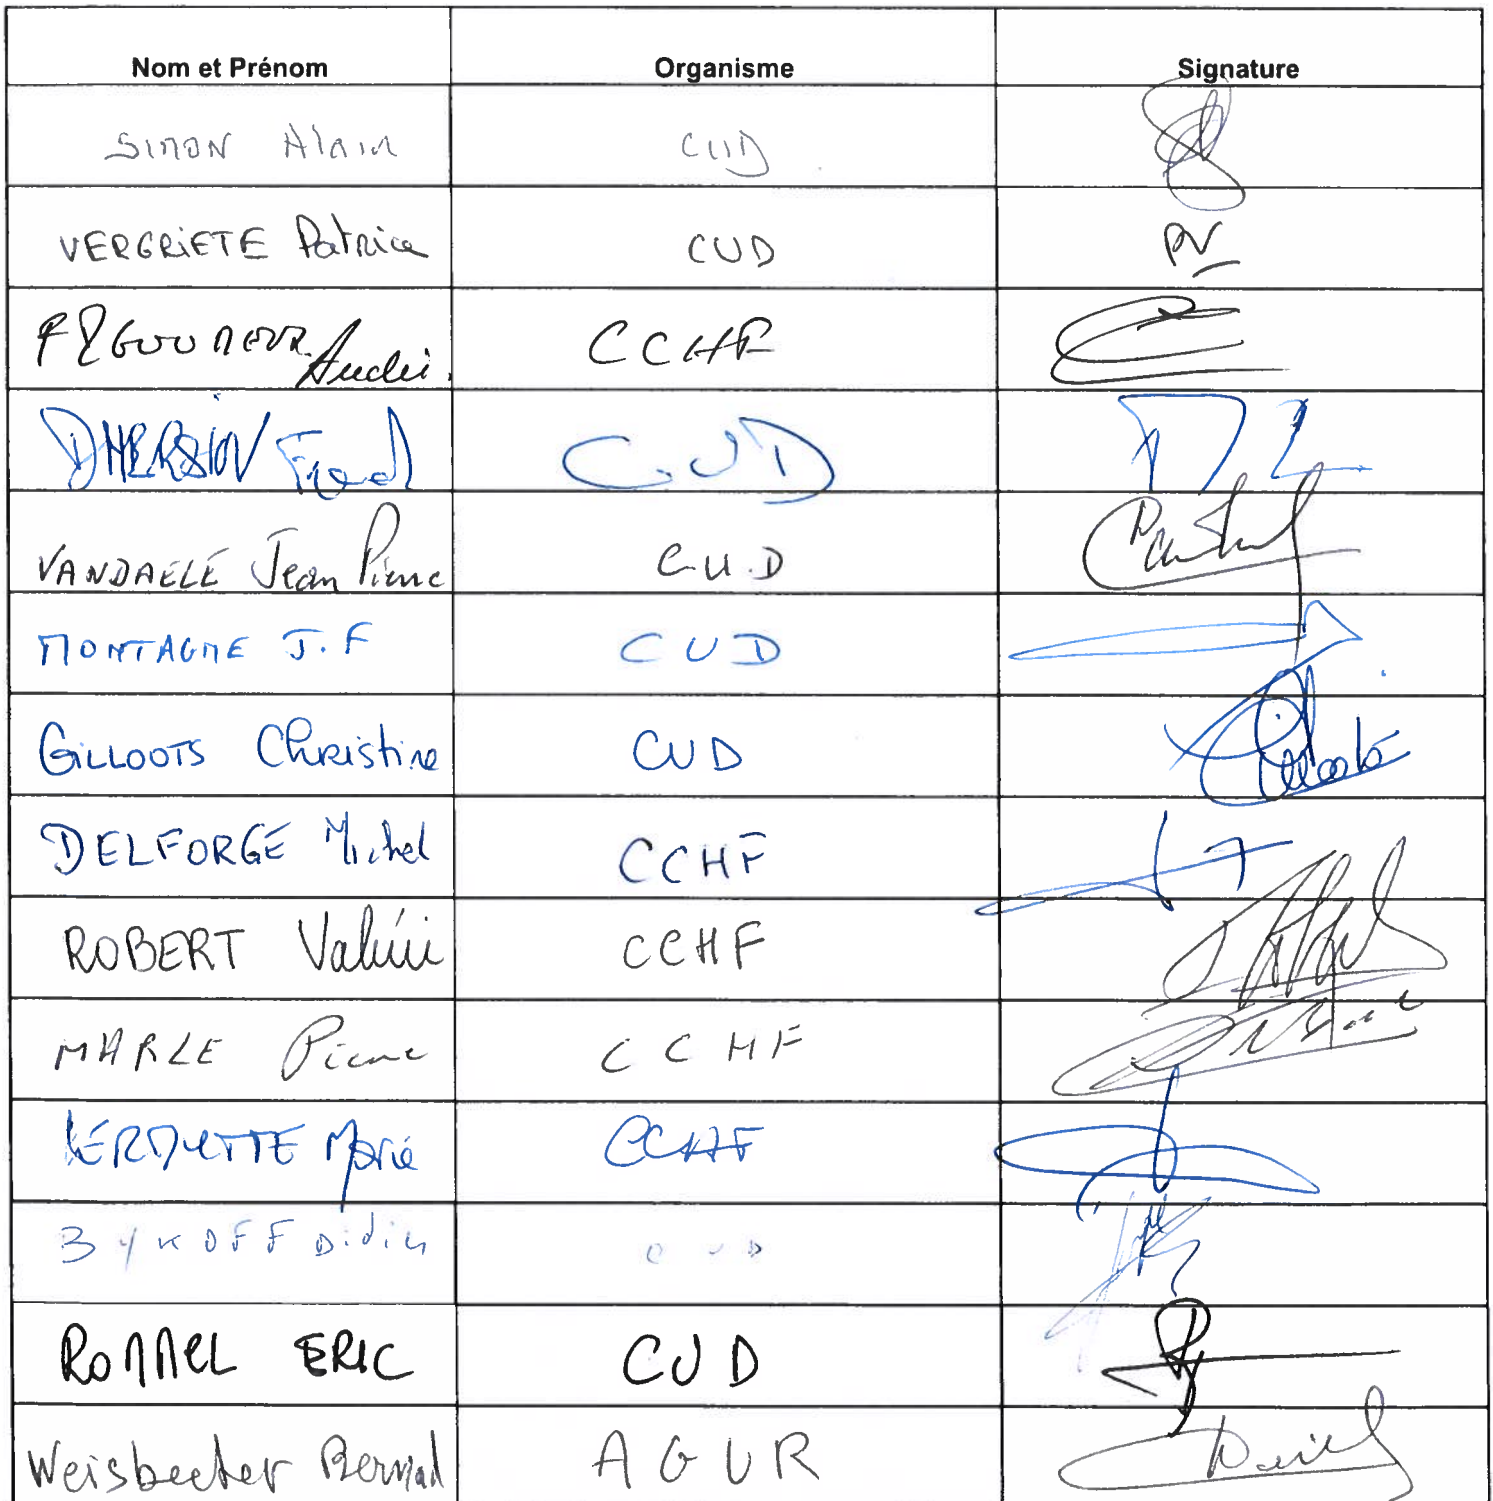 Nom et Prénom Organisme Signature
SIMON Alain CUD
VERGRIETE Patrice CUD PV
André CCHF
CUD
VANDAELE Jean Pierre C.U.D
MONTAGNE J.F CUD
GILLOOTS Christine CUD
DELFORGE Michel CCHF
ROBERT Valérie CCHF
MARLE Pierre CCHF
VERDUTTE Marie CCHF
BYKOFF Didier CUD
ROMMEL ERIC CUD
Weisbecker Bernard AGUR